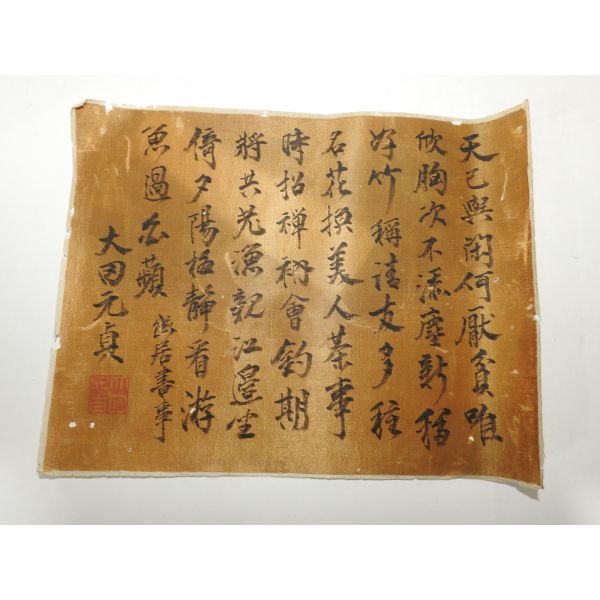 天已與閑何厭貧唯
欣胸次不添塵新移
好竹稱清友多種
名花擬美人茶事
時招禅衲會釣期
將共老漁親江邊坐
倚夕陽静看游
魚過白蘋 居書事
大田元貞